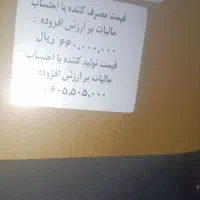 قیمت مصرف کننده با احتساب
مالیات بر ارزش افزوده :
۶۶۰,۰۰۰,۰۰۰ ریال
قیمت تولید کننده با احتساب
مالیات بر ارزش افزوده
: ۶۰۵,۵۰۵,۰۰۰